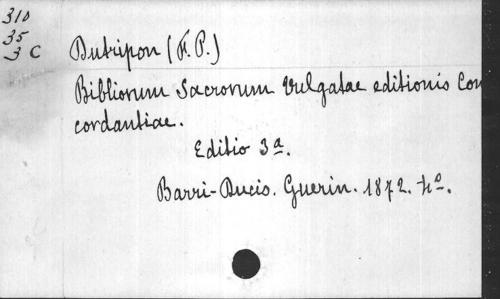 310
35
3 C
Dutripon (F. P.)
Bibliorum Sacrorum Vulgatae editionis Con
cordantiae.
Editio 3a.
Barri-Ducis. Guerin. 1872. 4o.